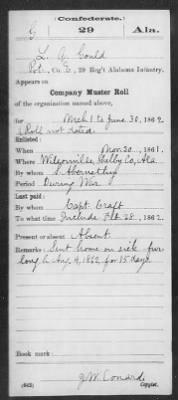 (Confederate.)
G 29 Ala.
L. A. Gould
Pvt., Co. G, 29 Reg't Alabama Infantry.
Appears on
Company Muster Roll
of the organization named above,
for Mch 1 to June 30, 1862.
Roll not dated
Enlisted:
When Nov. 30, 1861.
Where Wilsonville, Shelby Co, Ala
By whom S. Abernethy
Period During War
Last paid:
By whom Capt. Craft
To what time Include Feb. 28, 1862.
Present or absent Absent.
Remarks: Sent home on sick fur
lough Aug. 9, 1862 for 15 days.
Book mark:
(642) J. W. Conard
Copyist.